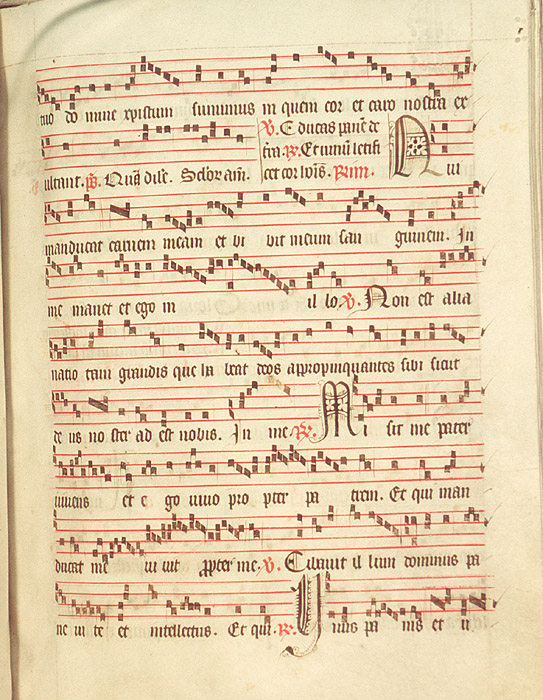 tuo do mine xpistum sumimus in quem cor et caro nostra ex
ultant. ps. Quā dile. Seclor am̄. V. Educas panē de
tra. R. Et vinū letifi
cet cor hois. Prim. Qui
manducat carnem meam et bi bit meum san guinem. In
me manet et ego in il lo. V. Non est alia
natio tam grandis que ha beat deos appropinquantes sibi sicut
de us no ster ad est nobis. In me R. Mi sit me pater
vivens et e go vivo pro pter pa trem. Et qui man
ducat me vi vit ꝓpter me. V. Cibavit il lum dominus pa
ne vi te et intellectus. Et qui. R. Unus pa nis et u